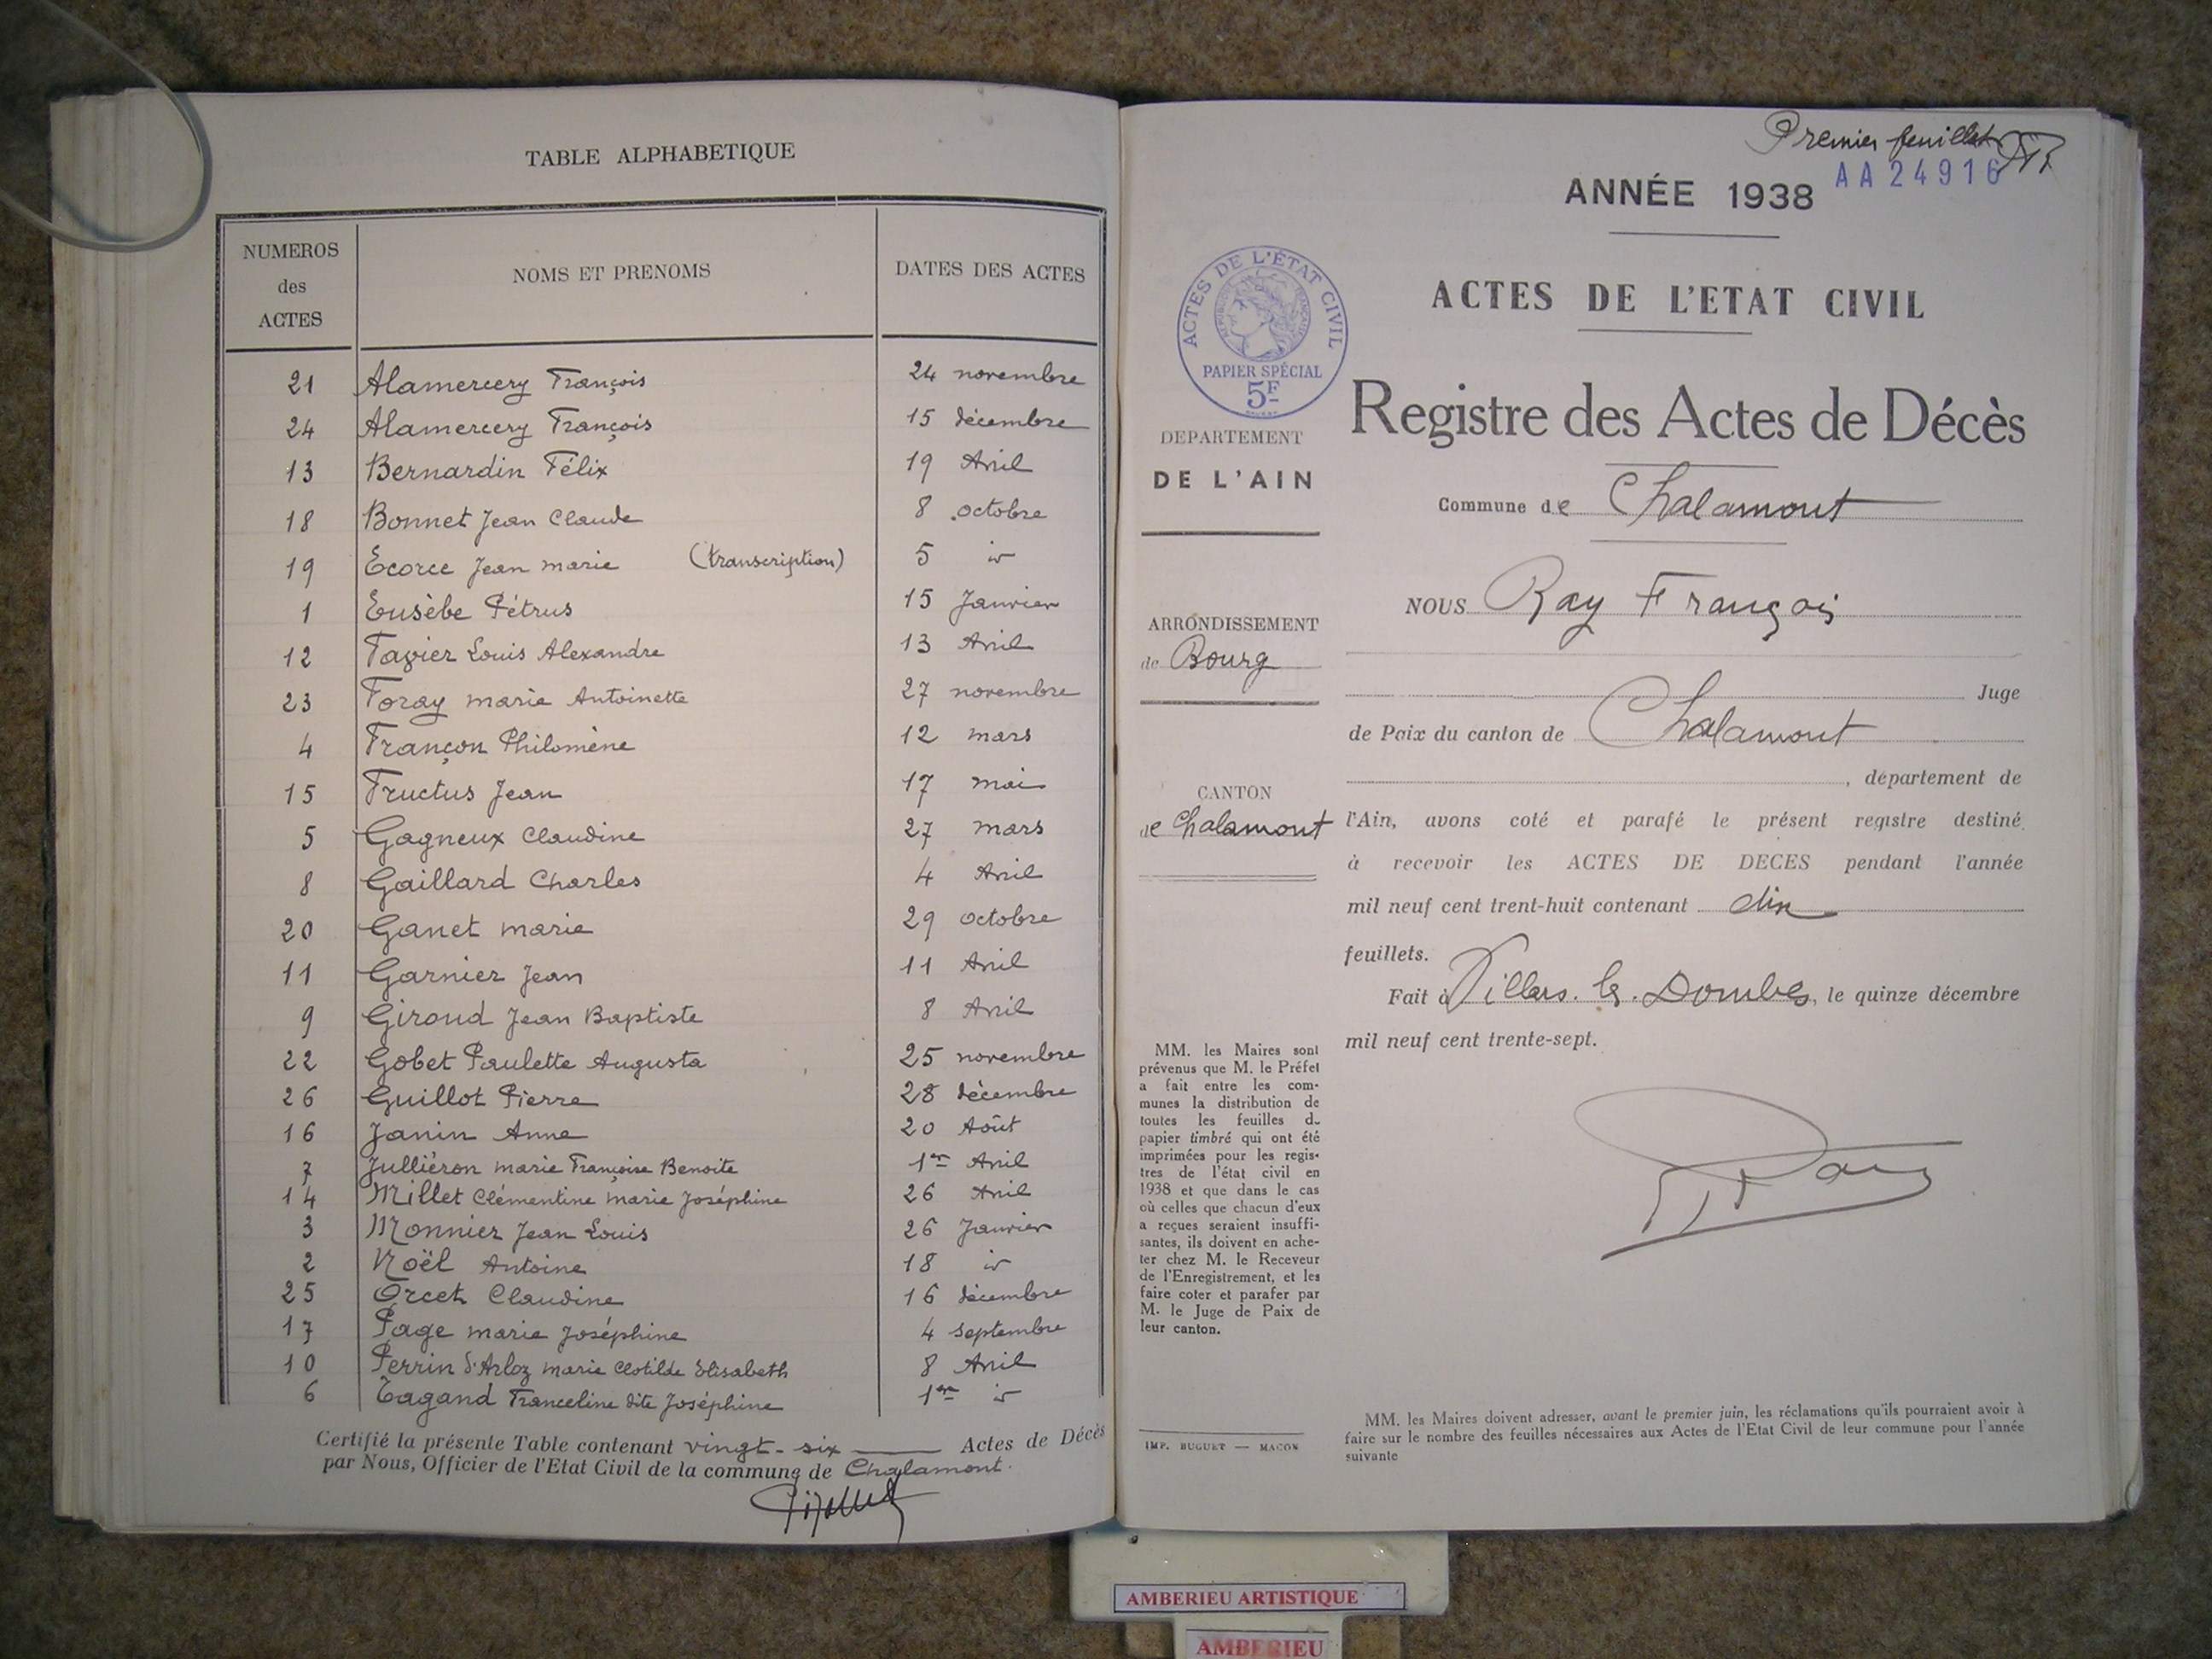 TABLE ALPHABETIQUE
NUMEROS des ACTES NOMS ET PRENOMS DATES DES ACTES
21 Alamercery François 24 novembre
24 Alamercery François 15 décembre
13 Bernardin Félix 19 Avril
18 Bonnet Jean Claude 8 octobre
19 Ecorce Jean marie (transcription) 5 id
1 Eusèbe Pétrus 15 Janvier
12 Favier Louis Alexandre 13 Avril
23 Foray marie Antoinette 27 novembre
4 Françon Philomène 12 mars
15 Fructus Jean 17 mai
5 Gagneux Claudine 27 mars
8 Gaillard Charles 4 Avril
20 Ganet marie 29 octobre
11 Garnier Jean 11 Avril
9 Giroud Jean Baptiste 8 Avril
22 Gobet Paulette Augusta 25 novembre
26 Guillot Pierre 28 décembre
16 Janin Anne 20 Août
7 Julliéron marie Françoise Benoite 1er Avril
14 Millet Clémentine marie Joséphine 26 Avril
3 Monnier Jean Louis 26 Janvier
2 Noël Antoine 18 id
25 Orcet Claudine 16 décembre
17 Page marie Joséphine 4 Septembre
10 Perrin d'Arloz marie Clotilde Elisabeth 8 Avril
6 Tagand Franceline dite Joséphine 1er id
Certifié la présente Table contenant vingt-six Actes de Décès
par Nous, Officier de l'Etat Civil de la commune de Chalamont.
Premier feuillet
AA24916
ANNÉE 1938
ACTES DE L'ETAT CIVIL
ACTES DE L'ÉTAT CIVIL
REPUBLIQUE FRANÇAISE
PAPIER SPÉCIAL
5F
Registre des Actes de Décès
DEPARTEMENT
DE L'AIN
Commune de Chalamont
ARRONDISSEMENT
de Bourg
CANTON
de Chalamont
NOUS Ray François
Juge
de Paix du canton de Chalamont
, département de
l'Ain, avons coté et parafé le présent registre destiné
à recevoir les ACTES DE DECES pendant l'année
mil neuf cent trent-huit contenant dix
feuillets.
Fait à Villars. les. Dombes, le quinze décembre
mil neuf cent trente-sept.
Ray
MM. les Maires sont
prévenus que M. le Préfet
a fait entre les com-
munes la distribution de
toutes les feuilles d
papier timbré qui ont été
imprimées pour les regis-
tres de l'état civil en
1938 et que dans le cas
où celles que chacun d'eux
a reçues seraient insuffi-
santes, ils doivent en ache-
ter chez M. le Receveur
de l'Enregistrement, et les
faire coter et parafer par
M. le Juge de Paix de
leur canton.
IMP. BUGUET — MACON
MM. les Maires doivent adresser, avant le premier juin, les réclamations qu'ils pourraient avoir à
faire sur le nombre des feuilles nécessaires aux Actes de l'Etat Civil de leur commune pour l'année
suivante
AMBERIEU ARTISTIQUE
AMBERIEU